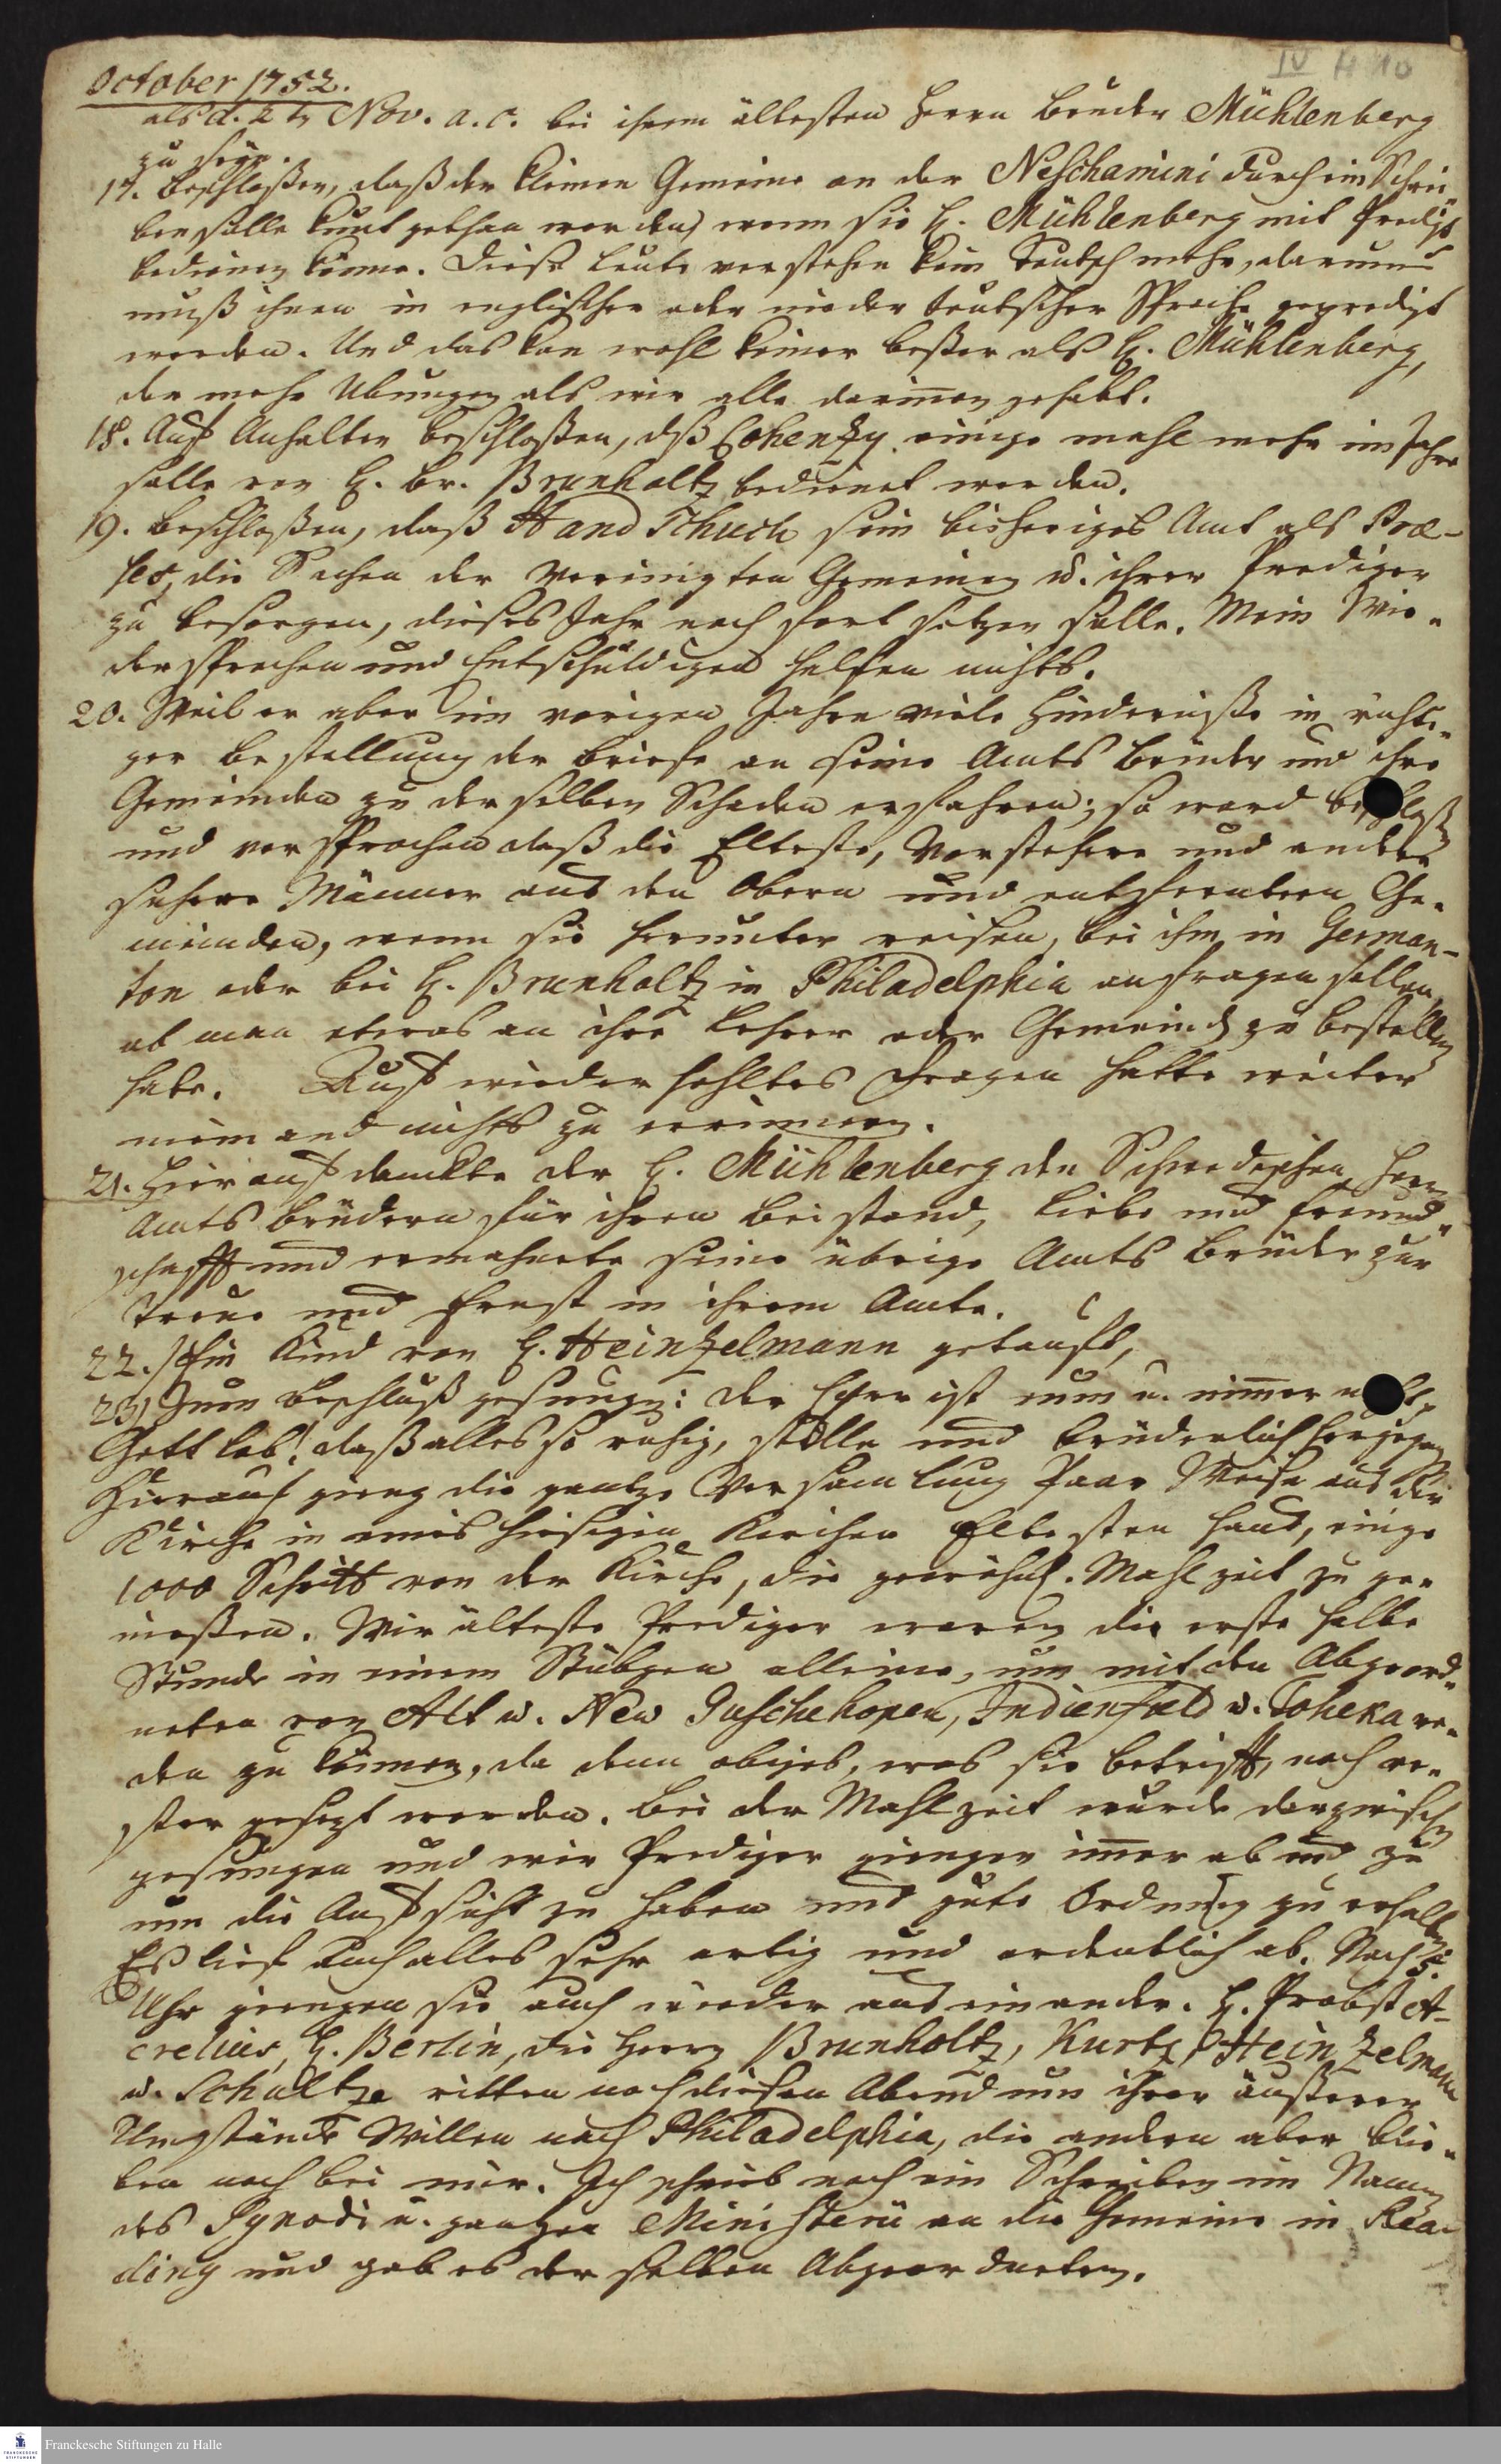 IV H 10
October 1752.
als d. 2t Nov. a. c. bei ihrem ältesten Herrn Bruder Mühlenberg
zu seyn.
17. Beschloßen, daß der kleinen Gemeine an der Neschamini durch ein Schrei-
ben solle kunt gethan werden, wenn sie H. Mühlenberg mit Predigt
bedienen könne. Diese Leute verstehen kein Teutsch mehr, darum
muß ihnen in englischer oder nieder teutscher Sprache gepredigt
werden. Und das kan wohl keiner beßer als H. Mühlenberg,
der mehr Übungen als wir alle darinnen gehabt.
18. Auf Anhalten beschloßen, dß Cohenzy einige mahl mehr im Jahr
solle von H. Br. Brunholtz bedienet werden.
19. Beschloßen, daß Handschuch sein bisheriges Amt als Præ-
ses, die Sachen der Vereinigten Gemeinen u. ihrer Prediger
zu besorgen, dieses Jahr noch fort setzen solle. Mein Wie-
dersprechen und Entschuldigen halfen nichts.
20. Weil er aber im vorigen Jahre viele Hinderniße in richti-
ger Bestellung der Briefe an seine Amts Brüder und ihre
Gemeinden zu derselben Schaden erfahren; so ward beschloßen
und versprochen daß die Elteste, Vorstehere und andere
Männer aus den Obern und entfernetern Ge-
meinden, wenn sie herunter reisen, bei ihm in German-
ton oder bei H. Brunholtz in Philadelphia anfragen sollen,
ob man etwas an ihre Lehrer oder Gemeinden zu bestellen
habe. Auf wiederhohltes Fragen hatte weiter
niemand nichts zu erinnern.
21. Hierauf danckte der H. Mühlenberg den Schwedischen Herrn
Amts Brüdern für ihren Beistand, Liebe und Freund-
schafft und ermahnete seine übrige Amts Brüder zur
Treue und Ernst in ihrem Amte.
22.) Ein Kind von H. Heinzelmann getauft,
23) Zum Beschluß gesungen: Der Herr ist nun u. nimmer
Gott lob! daß alles so ruhig, stille und brüderlich hergegangen
Hierauf gieng die gantze Versamlung Paar Weise aus der
Kirche in eines hiesigen Kirchen Eltesten Haus, einige
1000 Schritt von der Kirche, die gewöhnl. Mahlzeit zu ge-
nießen. Wir älteste Prediger waren die erste halbe
Stunde in einem Stübgen alleine, um mit den Abgeord-
neten von Alt u. New Guschehopen, Indienfield u. Toheka re-
den zu können, da denn obiges, was sie betrifft, noch ve-
ster gesezt worden. Bei der Mahlzeit wurde darzwischen
gesungen und wir Prediger giengen immer ab und zu
um die Aufsicht zu haben und gute Ordnung zu erhalten
Es lief auch alles sehr artig und ordentlich ab. Nach 5.
Uhr giengen sie auch wieder aus einander. H. Probst A-
crelius, H. Berlin, die Herrn Brunholtz, Kurtz, Heinzelmann
u. Schultze ritten noch diesen Abend um ihrer äußeren
Umstände Willen nach Philadelphia, die andern aber blie-
ben noch bei mir. Ich schrieb noch ein Schreiben im Namen
des Synodi u. gantzen Ministerii an die Gemeine in Rea-
ding und gab es derselben Abgeordneten.
Franckesche Stiftungen zu Halle